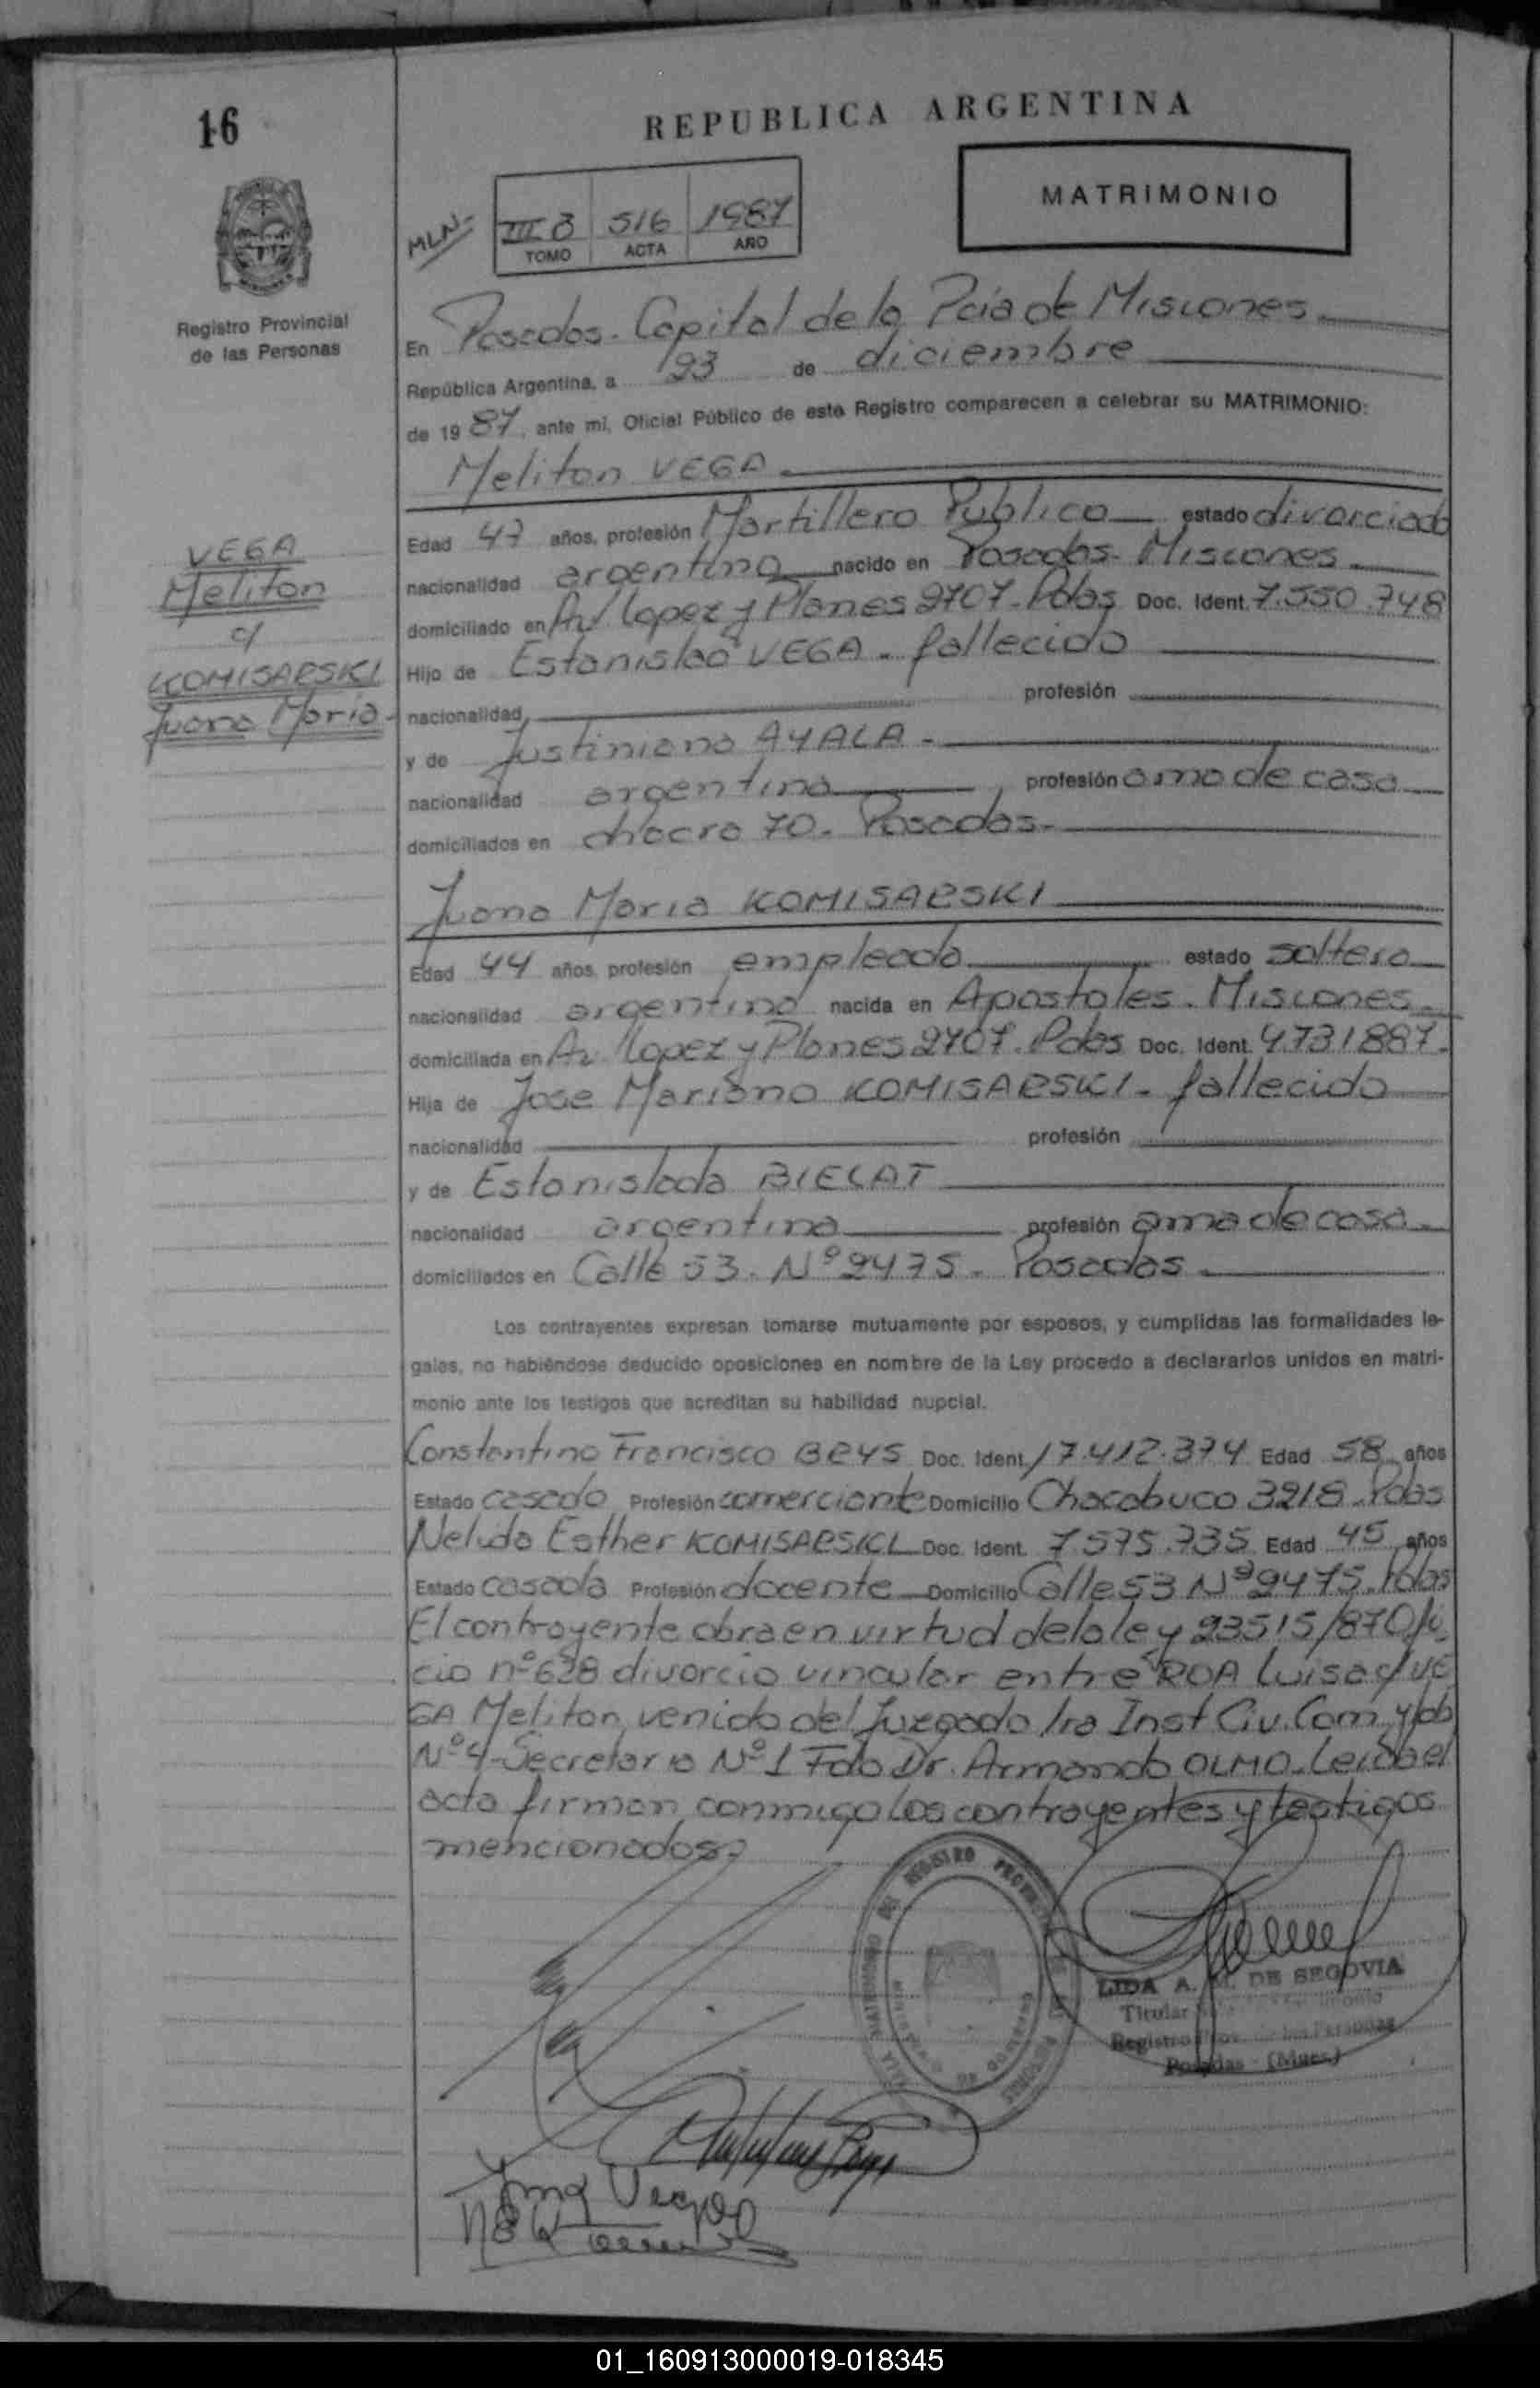 16
REPUBLICA ARGENTINA
MATRIMONIO
MLN-
III B 516 1987
TOMO ACTA AÑO
Registro Provincial
de las Personas
En Posadas. Capital de la Pcia de Misiones
República Argentina, a 23 de diciembre
de 1987, ante mí, Oficial Público de este Registro comparecen a celebrar su MATRIMONIO:
Meliton VEGA
Edad 47 años, profesión Martillero Publico estado divorciado
nacionalidad argentina nacido en Posadas. Misiones
domiciliado en Av Lopez y Planes 2707. Pdas Doc. Ident. 7.550.748
Hijo de Estanislao VEGA - fallecido
nacionalidad profesión
y de Justiniana AYALA -
nacionalidad argentina profesión ama de casa
domiciliados en chacra 70. Posadas-
VEGA
Meliton
c/
KOMISARSKI
Juana Maria
Juana Maria KOMISARSKI
Edad 44 años, profesión empleada estado soltera
nacionalidad argentina nacida en Apostoles. Misiones
domiciliada en Av. Lopez y Planes 2707. Pdas Doc. Ident. 4.731887.
Hija de Jose Mariano KOMISARSKI - fallecido
nacionalidad profesión
y de Estanislada BIELAT
nacionalidad argentina profesión ama de casa
domiciliados en Calle 53. Nº 2475 - Posadas
Los contrayentes expresan tomarse mutuamente por esposos, y cumplidas las formalidades le-
gales, no habiéndose deducido oposiciones en nombre de la Ley procedo a declararlos unidos en matri-
monio ante los testigos que acreditan su habilidad nupcial.
Constantino Francisco BEYS Doc. Ident. 17.412.374 Edad 58 años
Estado casado Profesión comerciante Domicilio Chacabuco 3218. Pdas
Nelida Esther KOMISARSKI Doc. Ident. 7.575.735 Edad 45 años
Estado casada Profesión docente Domicilio Calle 53 Nº 2475. Pdas
El contrayente obra en virtud de la ley 23515/87 Ofi-
cio nº 628 divorcio vincular entre ROA Luisa c/ VE
GA Meliton venido del Juzgado 1ra Inst Civ. Com. y lab
Nº 4-Secretaria Nº 1 Fdo Dr. Armando OLMO. Leida el
acta firman conmigo los contrayentes y testigos
mencionados.
LIDA A. M. DE SEGOVIA
Titular
Registro Prov. de las Personas
Posadas - (Mnes.)
Vega
01_160913000019-018345